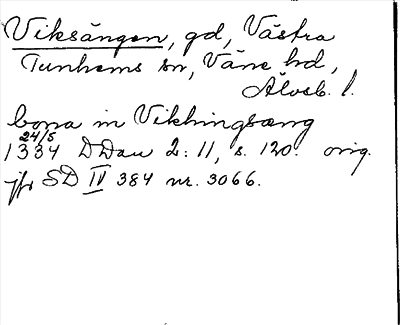 Viksängen, gd, Västra
Tunhems sn, Väne hd,
Älvsb. l.
bona in Vikhingsæng
24/5
1334 DDan 2:11, s. 120. orig.
jfr SD IV 384 nr. 3066.